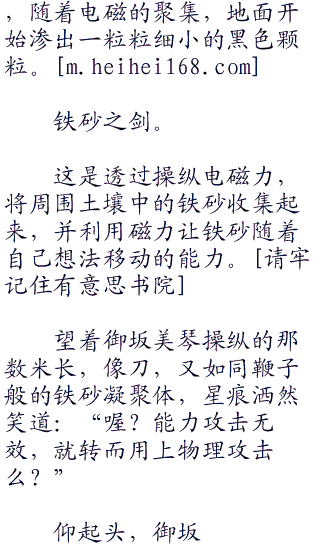 ，随着电磁的聚集，地面开
始渗出一粒粒细小的黑色颗
粒。[m.heihei168.com]
铁砂之剑。
这是透过操纵电磁力，
将周围土壤中的铁砂收集起
来，并利用磁力让铁砂随着
自己想法移动的能力。[请牢
记住有意思书院]
望着御坂美琴操纵的那
数米长，像刀，又如同鞭子
般的铁砂凝聚体，星痕洒然
笑道：“喔？能力攻击无
效，就转而用上物理攻击
么？”
仰起头，御坂